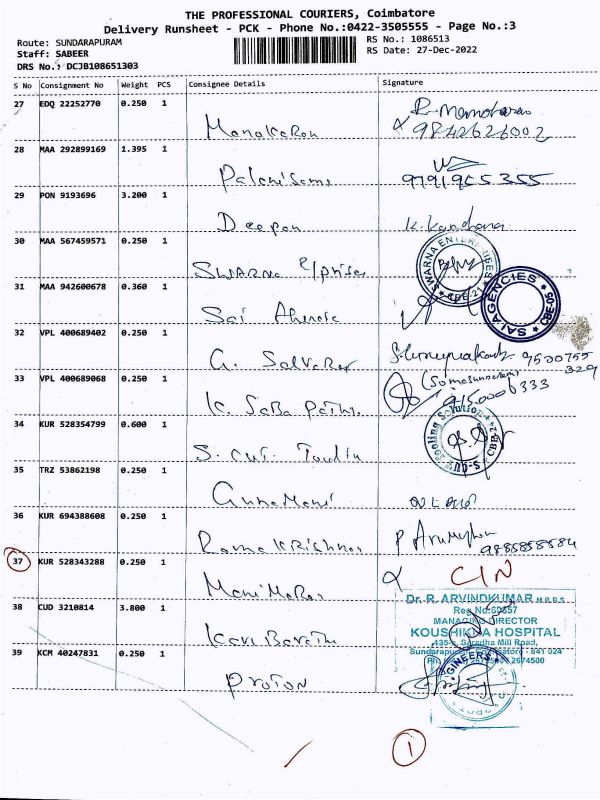 THE PROFESSIONAL COURIERS, Coimbatore
Delivery Runsheet - PCK - Phone No.:0422-3505555 - Page No.:3
Route: SUNDARAPURAM
RS No.: 1086513
Staff: SABEER
RS Date: 27-Dec-2022
DRS No.: DCJB108651303
S No Consignment No Weight PCS Consignee Details Signature
27 EDQ 22252770 0.250 1
Manokaran
R. Manoharan
9842626002
28 MAA 292899169 1.395 1
Palanisamy
9791965355
29 PON 9193696 3.200 1
Deepan K. Kandhana
30 MAA 567459571 0.250 1
SWARNA E/prises
SWARNA ENTERPRISES
CBE-21
31 MAA 942600678 0.360 1
Sai
SAI AGENCIES
CBE-05
32 VPL 400689402 0.250 1
G. 9500755
329
33 VPL 400689068 0.250 1
K. Saba Pathi
(Somasundaram)
9150006333
34 KUR 528354799 0.600 1
S. cut
Tooling Solution
S-cut
CBE-21
35 TRZ 53862198 0.250 1
Annamani
36 KUR 694388608 0.250 1
Rama Krishnan
P Arumugham
9885858584
37 KUR 528343288 0.250 1
Manimaran
C/N
38 CUD 3210814 3.800 1
Kavi Barathi
Dr. R. ARVINDKUMAR M.B.B.S
Reg No:
MANAGING DIRECTOR
KOUSHIKAA HOSPITAL
Saradha Mill Road,
Sundarapuram, Coimbatore - 641 024
2674500
39 KCM 40247831 0.250 1
PROTON
ENGINEERS
1